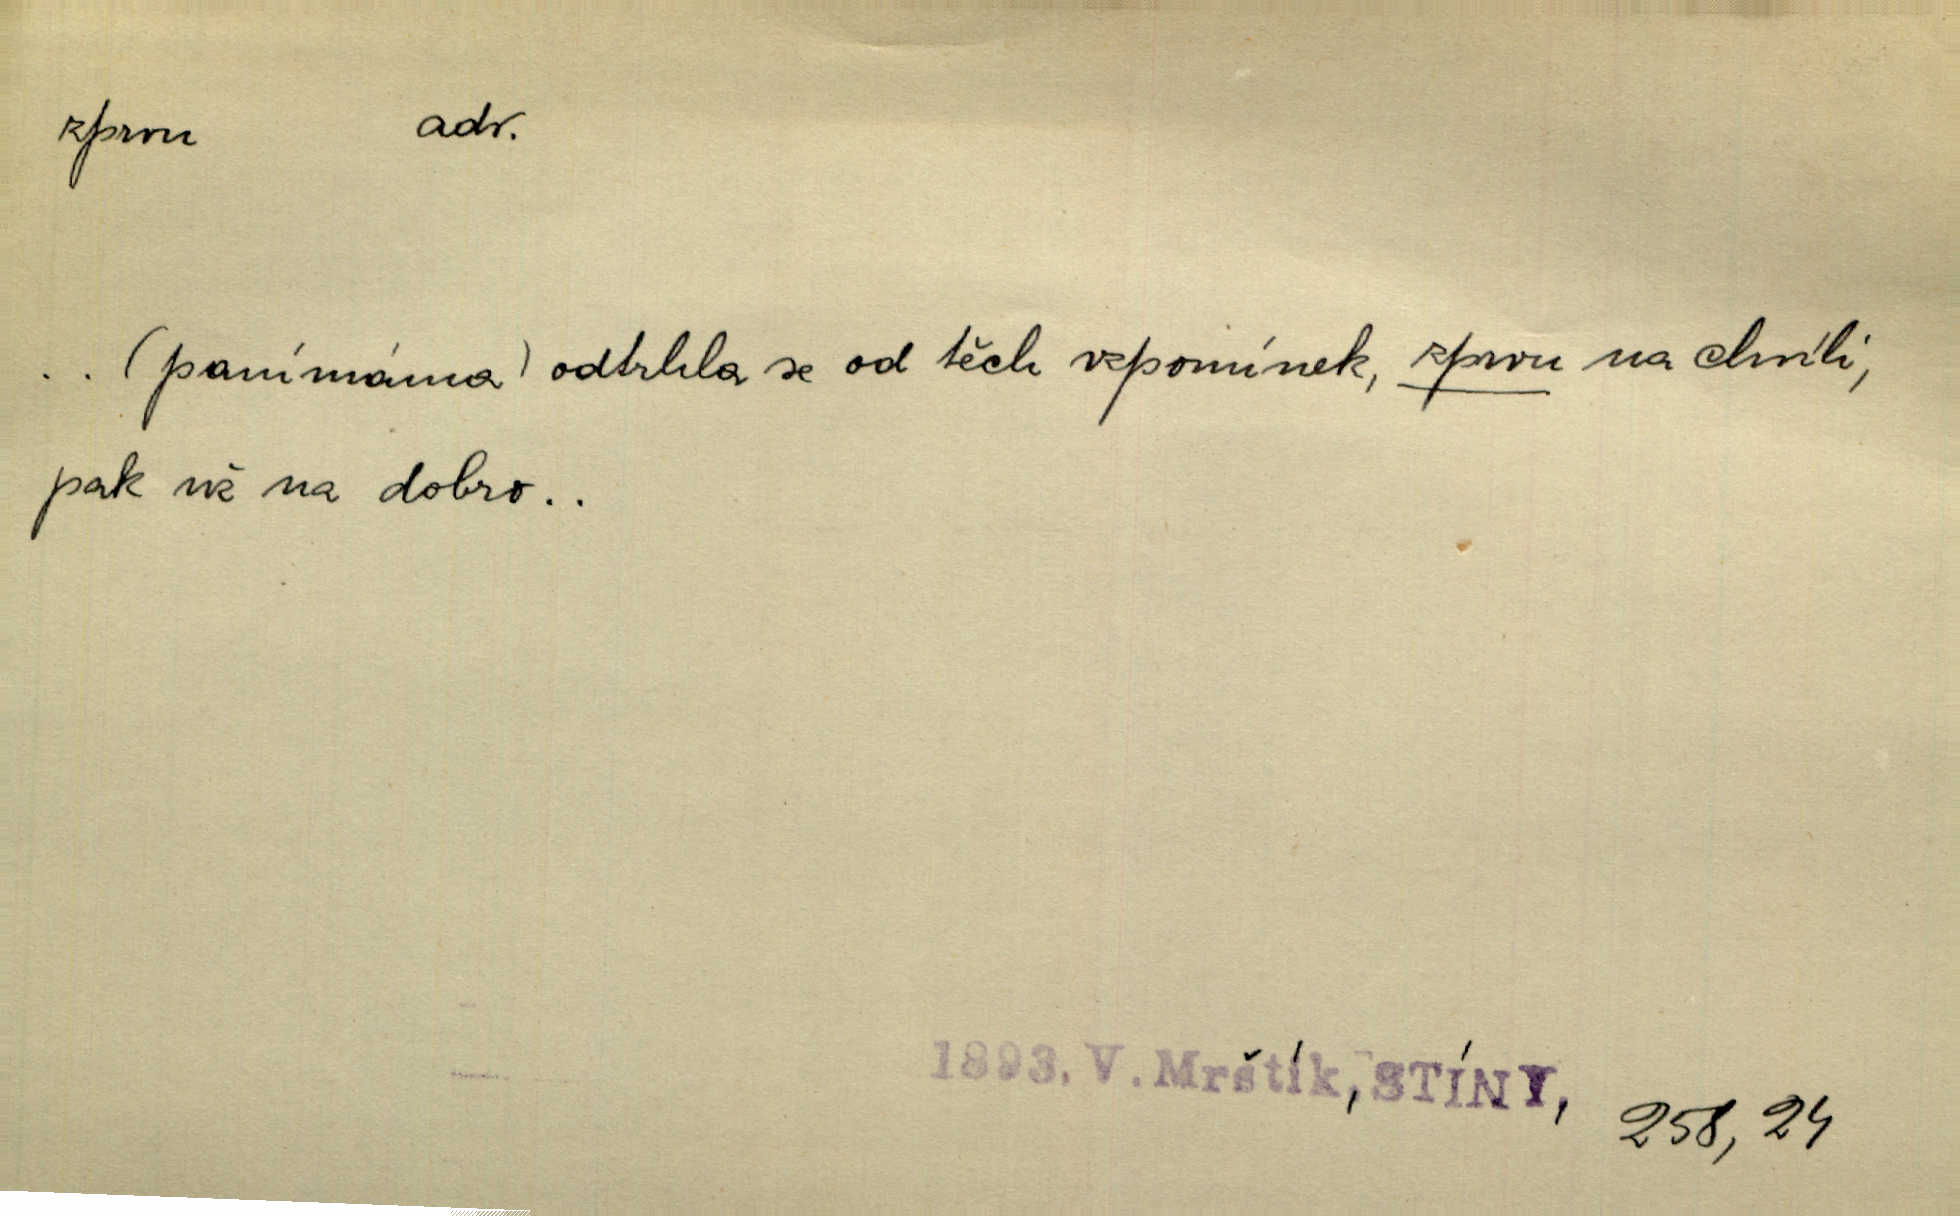 zprvu adv.
.. (panímáma) odtrhla se od těch vzpomínek, zprvu na chvíli,
pak už na dobro..
1893. V. Mrštík, STÍNY, 258, 24